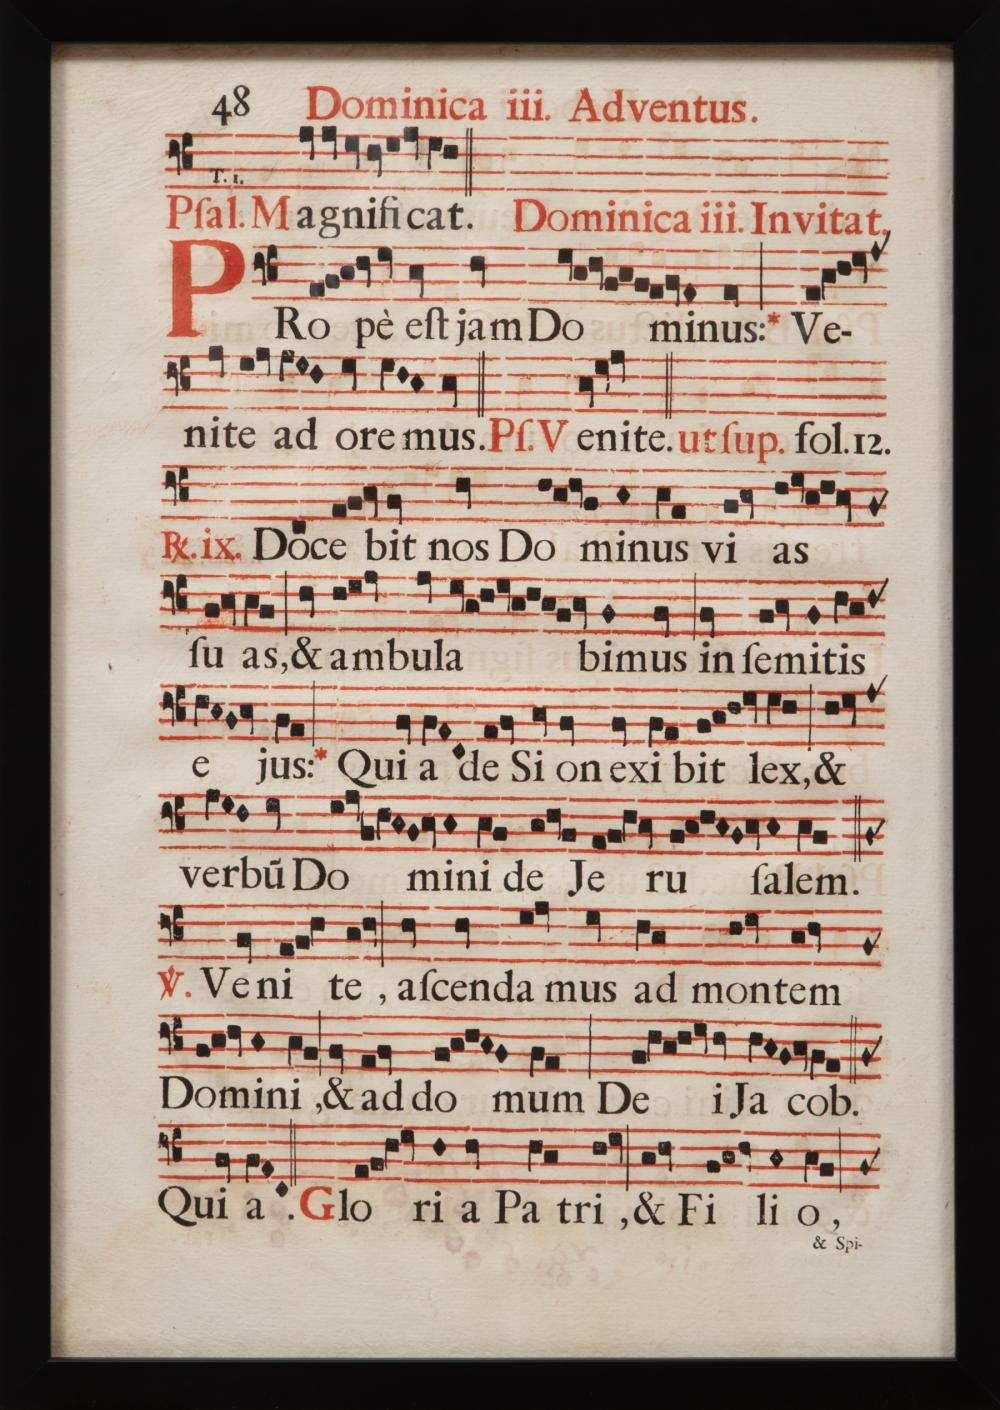 48 Dominica iii. Adventus.
T. 1.
Pſal. Magnificat. Dominica iii. Invitat.
PRo pè eſt jam Do minus:* Ve-
nite ad ore mus. Pſ. Venite. ut ſup. fol. 12.
℟. ix. Doce bit nos Do minus vi as
ſu as, & ambula bimus in ſemitis
e jus:* Qui a de Si on exi bit lex, &
verbū Do mini de Je ru ſalem.
℣. Veni te, aſcenda mus ad montem
Domini, & ad do mum De i Ja cob.
Qui a. Glo ri a Pa tri, & Fi li o,
& Spi-